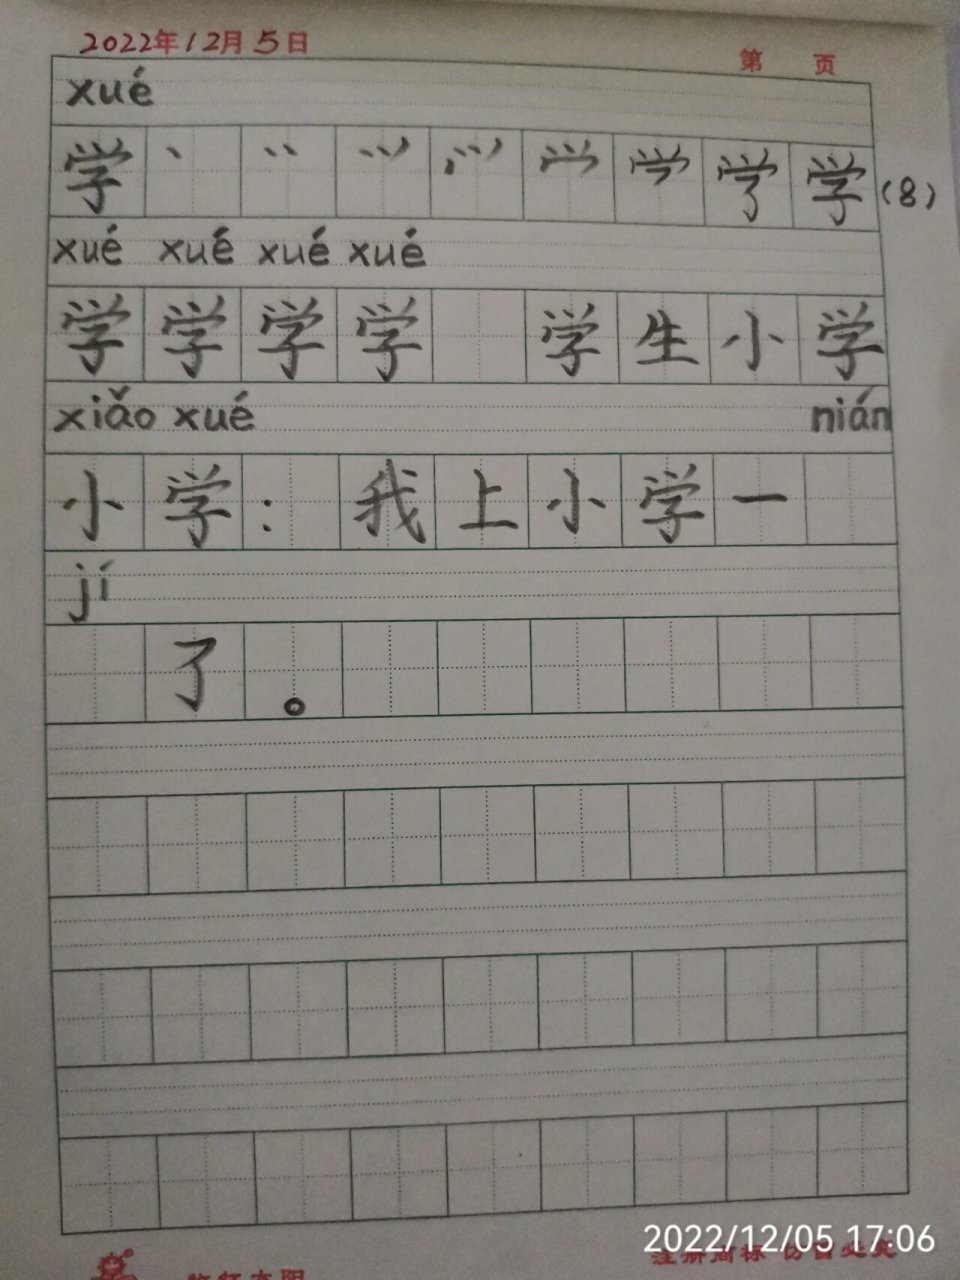 2022年12月5日
第 页
xué
学 丶 学 学 学 (8)
xué xué xué xué
学 学 学 学 学 生 小 学
xiǎo xué nián
小 学 : 我 上 小 学 一
jí
了 。
2022/12/05 17:06